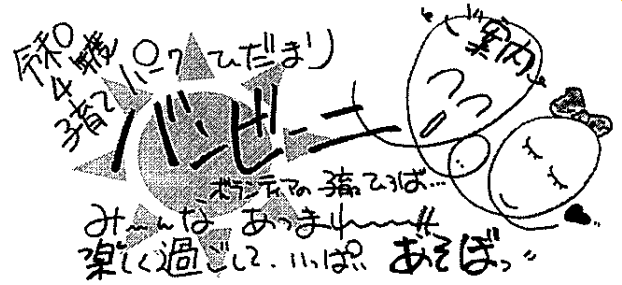 令和4年度
子育てパークひだまり
案内
バンビーニ
ボランティアの子育てひろば…
み〜んな あつまれ〜〜!!
楽しく過ごして、いっぱいあそぼっ